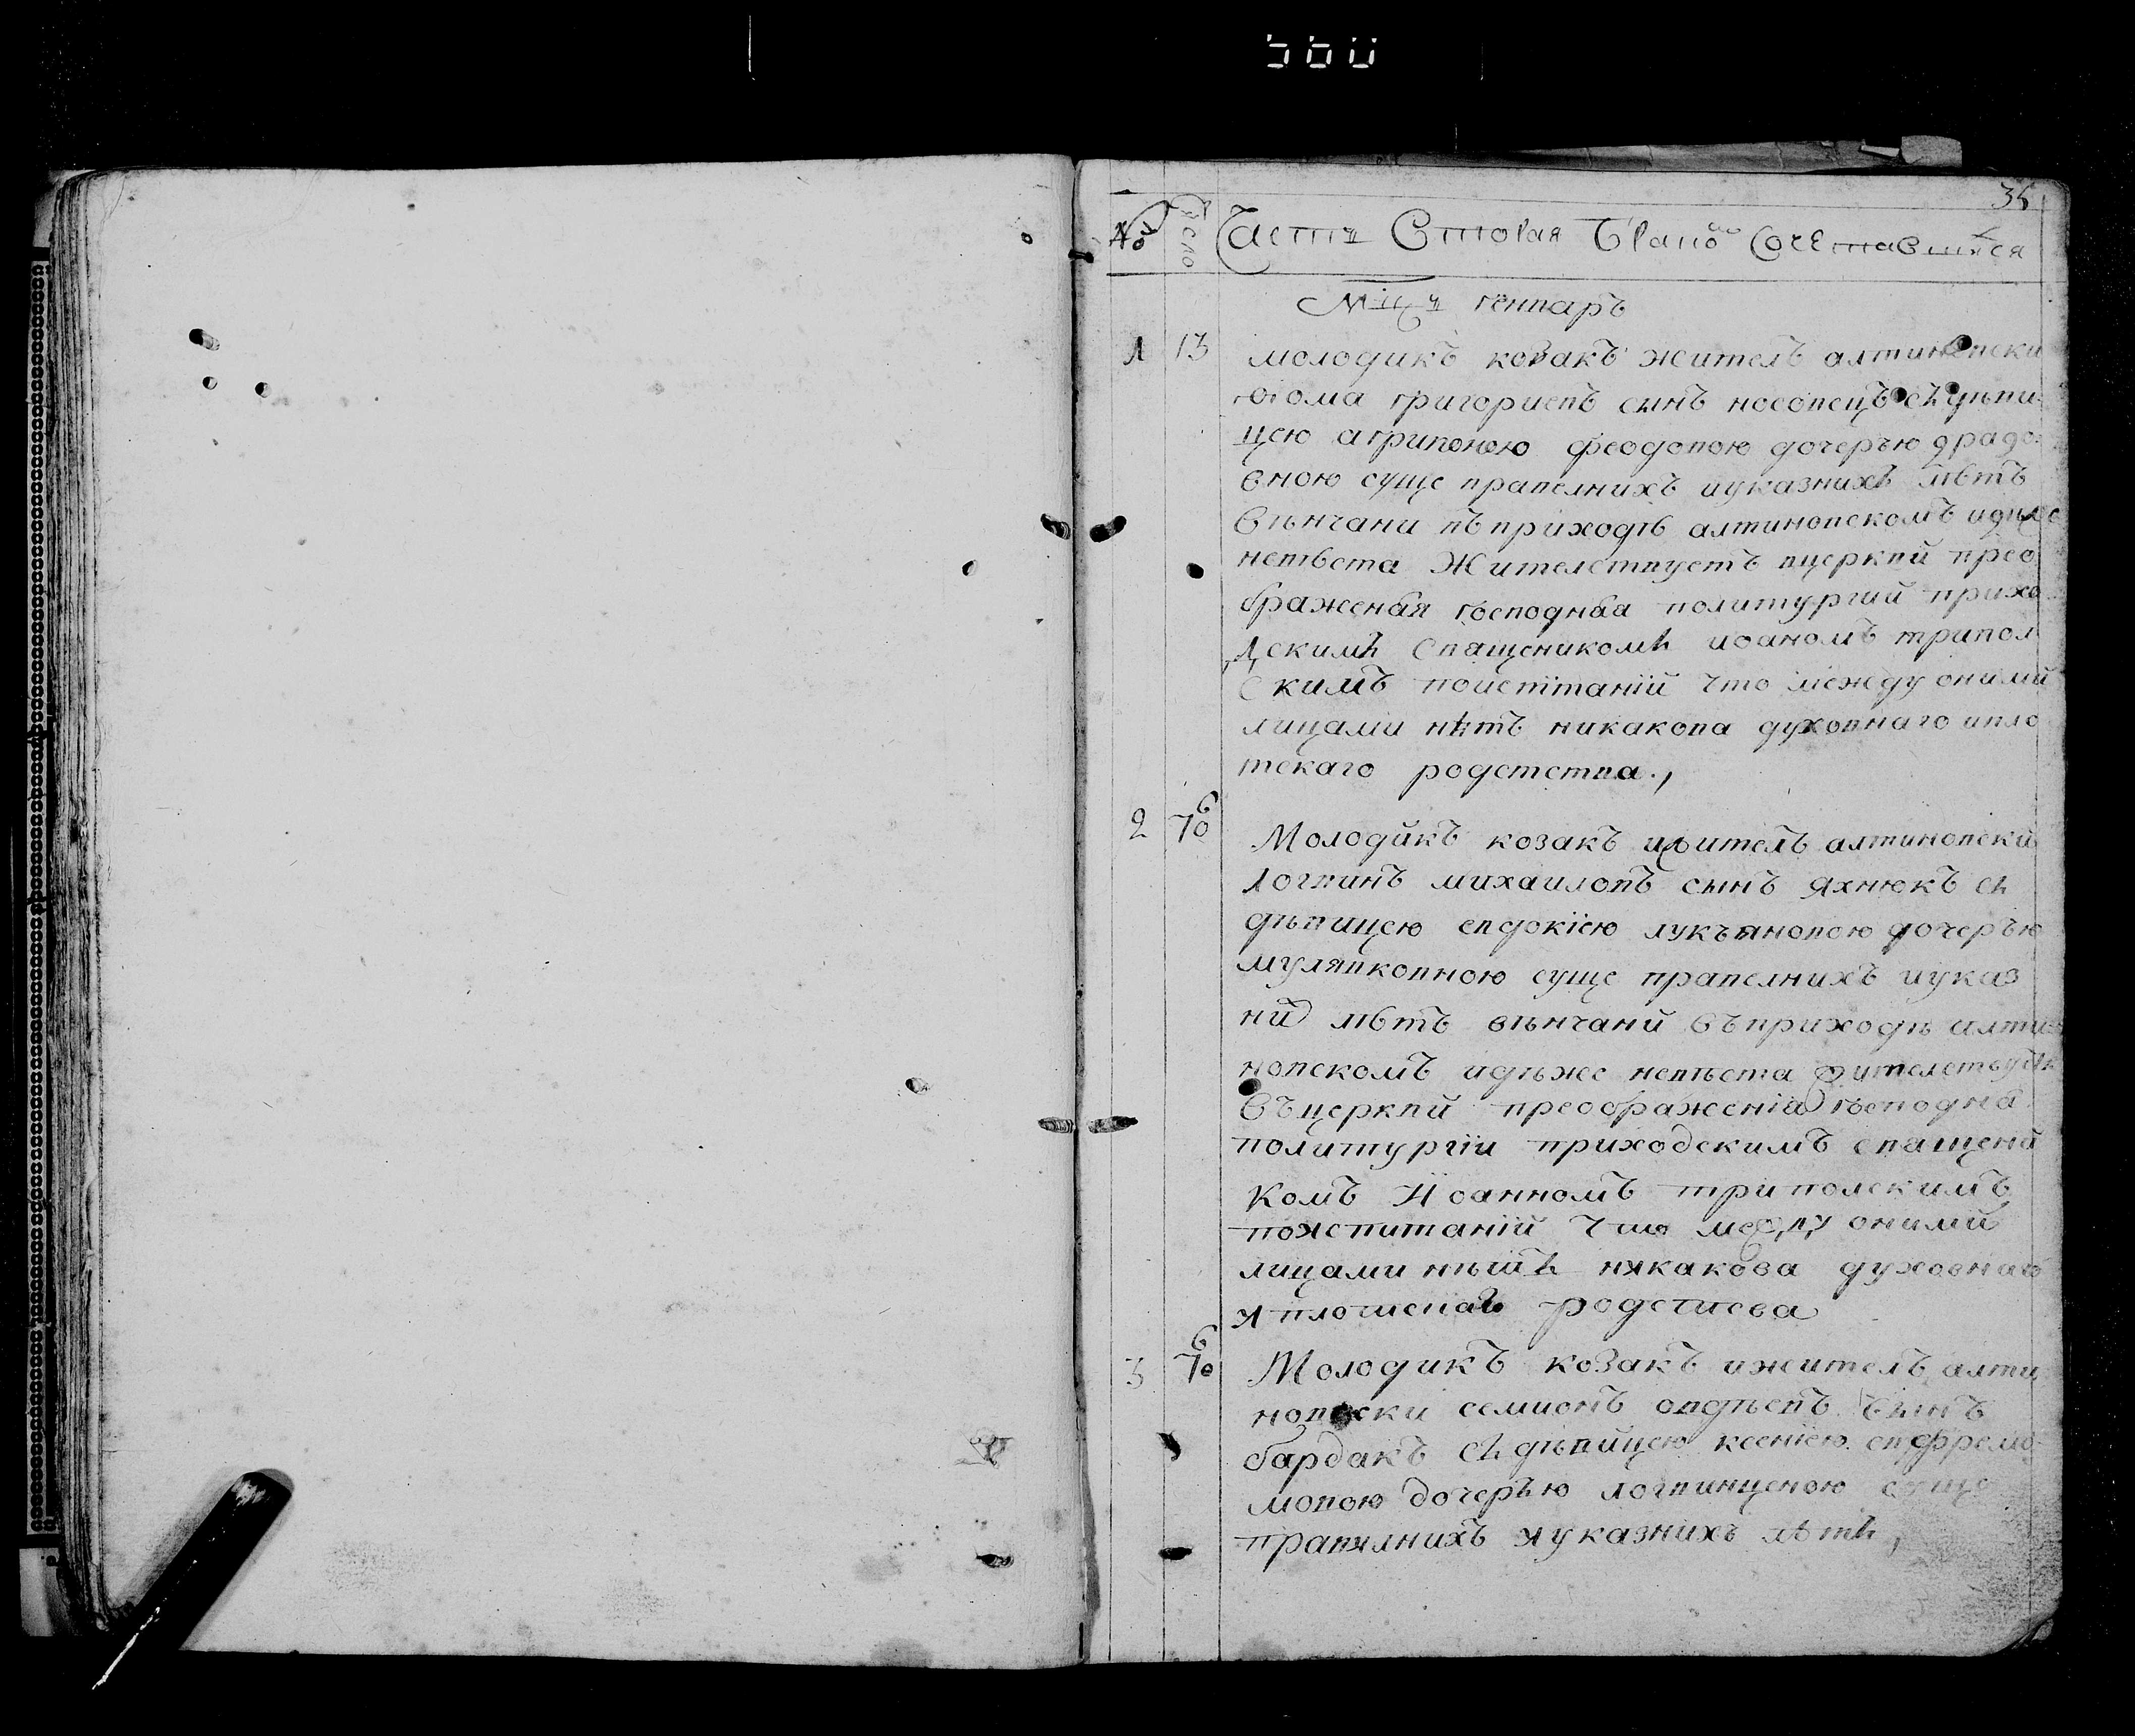 560
35
№ число Части Вторая О брако Сочетавшихся
Мцъ генваръ
1 13 молодикъ козакъ жителъ алтиновски
фома григориевъ синъ носовецъ съ дѣви
цею агрипиною феодовою дочеръю драдо
вною суще правелнихъ иуказнихъ лѣтъ
вѣнчани въ приходѣ алтиновскомъ идѣже
невѣста жителствуетъ вцеркви прео
браженія господня политургии прихо
дскимъ священикомъ иоаномъ трипол
скимъ поиспитаніи что между оними
лицами нѣтъ никакова духовнаго ипло
тскаго родствтва.,
2 70 Молодикъ козакъ ижителъ алтиновски
логвинъ михаиловъ синъ яхнюкъ съ
дѣвицею евдокіею лукъяновою дочеръю
мулявковною суще правелнихъ иуказ
них лѣтъ вѣнчани въприходѣ алти
новскомъ идѣже невѣста жителствуетъ
въцеркви преображеніа господня
политургіи приходскимъ священи
комъ Иоанномъ триполскимъ
поиспитаніи что между оними
лицами нѣтъ никакова духовнаго
и плотскаго родства
3 70 Молодикъ козакъ ижителъ алти
новски семионъ овдѣевъ синъ
бардакъ съ дѣвицею ксеніею ефремо
мовою дочерью логвинценою суще
правилнихъ иуказнихъ лѣтъ,